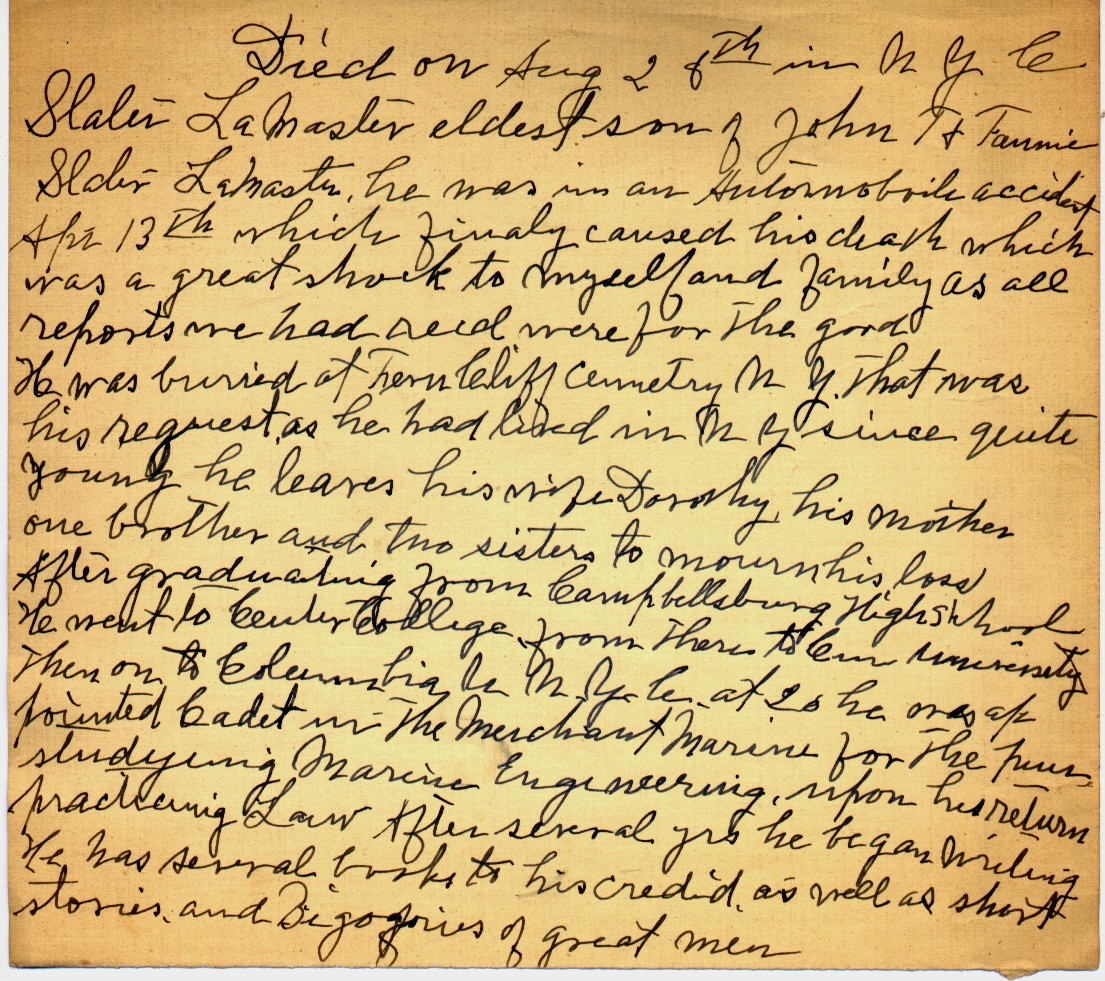 Died on Aug 28th in N Y C
Slater LaMaster eldest son of John T & Fannie
Slater LaMaster, he was in an Automobile accident
Apr 13th which finaly caused his death which
was a great shock to myself and family as all
reports we had recd were for the good
He was buried at Fern Cliff Cemetry N Y. That was
his request, as he had lived in N Y since quite
young he leaves his wife Dorothy, his mother
one brother and two sisters to mourn his loss
After graduating from Campbellsburg High School
He went to Center College, from there to Cin university
Then on to Columbia U N.Y.C. at 20 he was ap
pointed Cadet in The Merchant Marine for The
studyeing Marine Engineering, upon his return
practiceing Law After several yrs he began writing
He has several books to his credid, as well as short
stories, and of great men